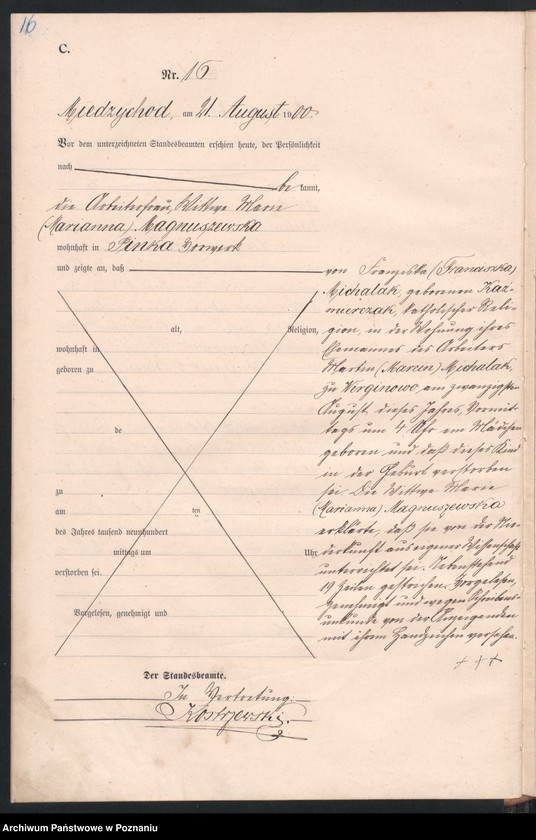 16
C.
Nr. 16
Miedzychod, am 21. August 1900.
Vor dem unterzeichneten Standesbeamten erschien heute, der Persönlichkeit
nach
be kannt,
die Arbeiterfrau, Wittwe Marie
(Marianna) Magnuszewska
wohnhaft in Pinka Vorwerk
und zeigte an, daß
von Franziska (Franciszka)
Michalak, geborenen Kaz-
mierczak, katholischer Reli-
gion, in der Wohnung ihres
Ehemannes des Arbeiters
Martin (Marcin) Michalak,
zu Virginowo, am zwanzigsten
August dieses Jahres, Vormit-
tags um 4 Uhr ein Mädchen
geboren und daß dieses Kind
in der Geburt verstorben
sei. Die Wittwe Marie
(Marianna) Magnuszewska
erklärte, daß sie von der Nie-
derkunft aus eigener Wissenschaft
unterrichtet sei. Nebenstehend
19 Zeilen gestrichen. Vorgelesen,
genehmigt und wegen Schreibens-
unkunde von der Anzeigenden
mit ihrem Handzeichen versehen.
+++
alt, Religion,
wohnhaft in
geboren zu
de
zu
am ten
des Jahres tausend neunhundert
mittags um Uhr
verstorben sei.
Vorgelesen, genehmigt und
Der Standesbeamte.
In Vertretung.
Kostrzewski.
Archiwum Państwowe w Poznaniu